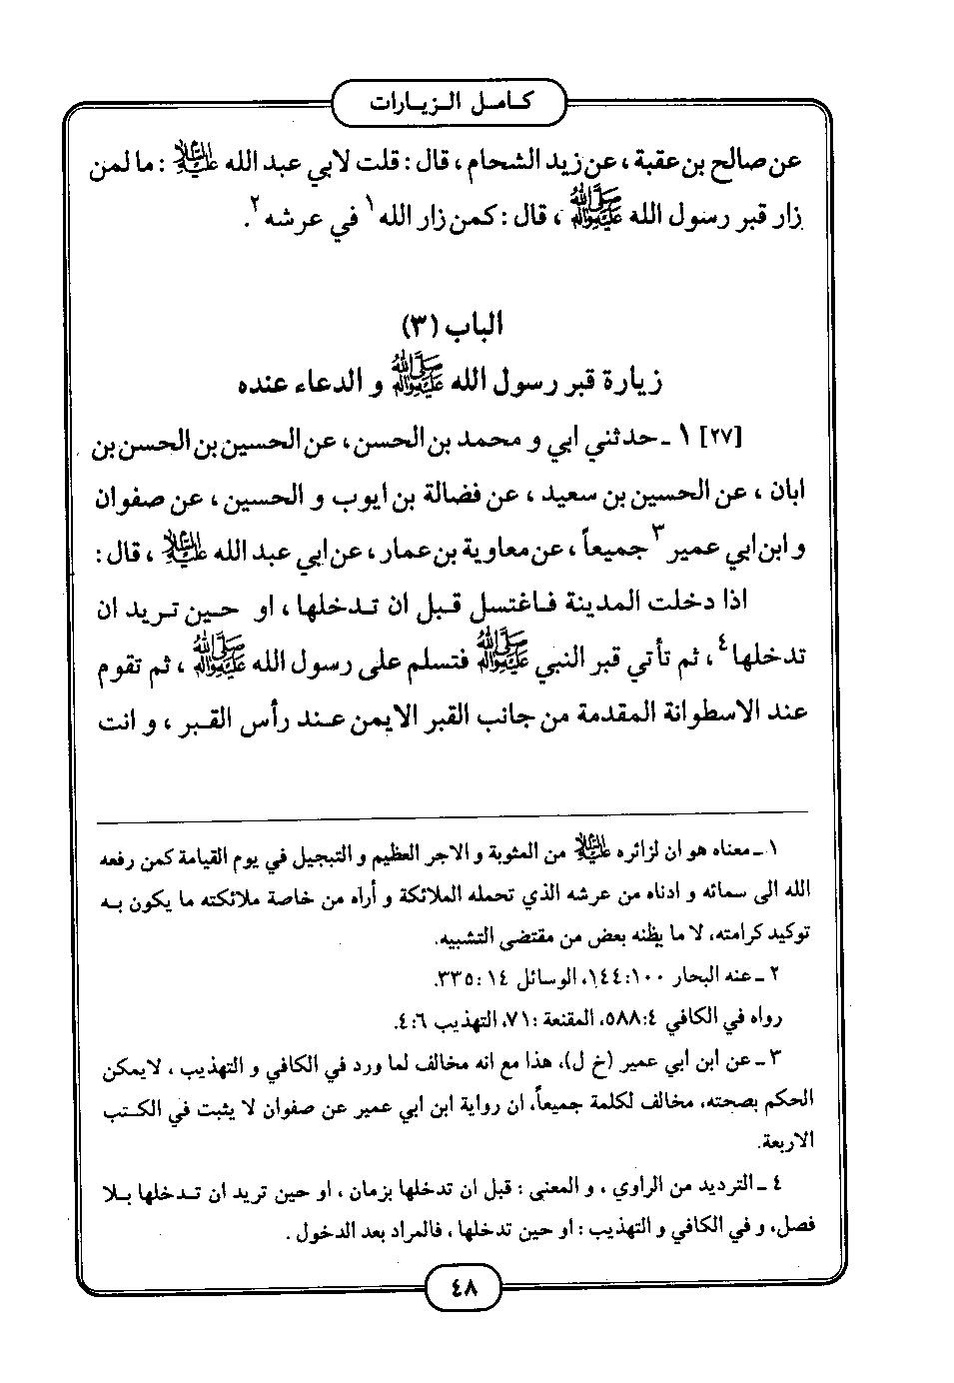 كـامـل الـزيـارات
عن صالح بن عقبة ، عن زيد الشحام ، قال : قلت لابي عبد الله عليه السلام : ما لمن
زار قبر رسول الله صلى الله عليه وآله ، قال : كمن زار الله ١ في عرشه ٢.
الباب (٣)
زيارة قبر رسول الله صلى الله عليه وآله و الدعاء عنده
[٢٧] ١ ـ حدثني ابي و محمد بن الحسن ، عن الحسين بن الحسن بن
ابان ، عن الحسين بن سعيد ، عن فضالة بن ايوب و الحسين ، عن صفوان
و ابن ابي عمير ٣ جميعاً ، عن معاوية بن عمار ، عن ابي عبد الله عليه السلام ، قال :
اذا دخلت المدينة فـاغتسل قـبل ان تـدخلها ، او حـين تـريد ان
تدخلها ٤ ، ثم تأتي قبر النبي صلى الله عليه وآله فتسلم على رسول الله صلى الله عليه وآله ، ثم تقوم
عند الاسطوانة المقدمة من جانب القبر الايمن عـند رأس القـبر ، و انت
١ ـ معناه هو ان لزائره عليه السلام من المثوبة و الاجر العظيم و التبجيل في يوم القيامة كمن رفعه
الله الى سمائه و ادناه من عرشه الذي تحمله الملائكة و أراه من خاصة ملائكته ما يكون بـه
توكيد كرامته، لا ما يظنه بعض من مقتضى التشبيه.
٢ ـ عنه البحار ١٠٠:١٤٤، الوسائل ١٤:٣٣٥.
رواه في الكافي ٤:٥٨٨، المقنعة :٧١، التهذيب ٦:٤.
٣ ـ عن ابن ابي عمير (خ ل)، هذا مع انه مخالف لما ورد في الكافي و التهذيب ، لايمكن
الحكم بصحته، مخالف لكلمة جميعاً، ان رواية ابن ابي عمير عن صفوان لا يثبت في الكـتب
الاربعة.
٤ ـ الترديد من الراوي ، و المعنى : قبل ان تدخلها بزمان ، او حين تريد ان تـدخلها بـلا
فصل، و في الكافي و التهذيب : او حين تدخلها ، فالمراد بعد الدخول .
٤٨